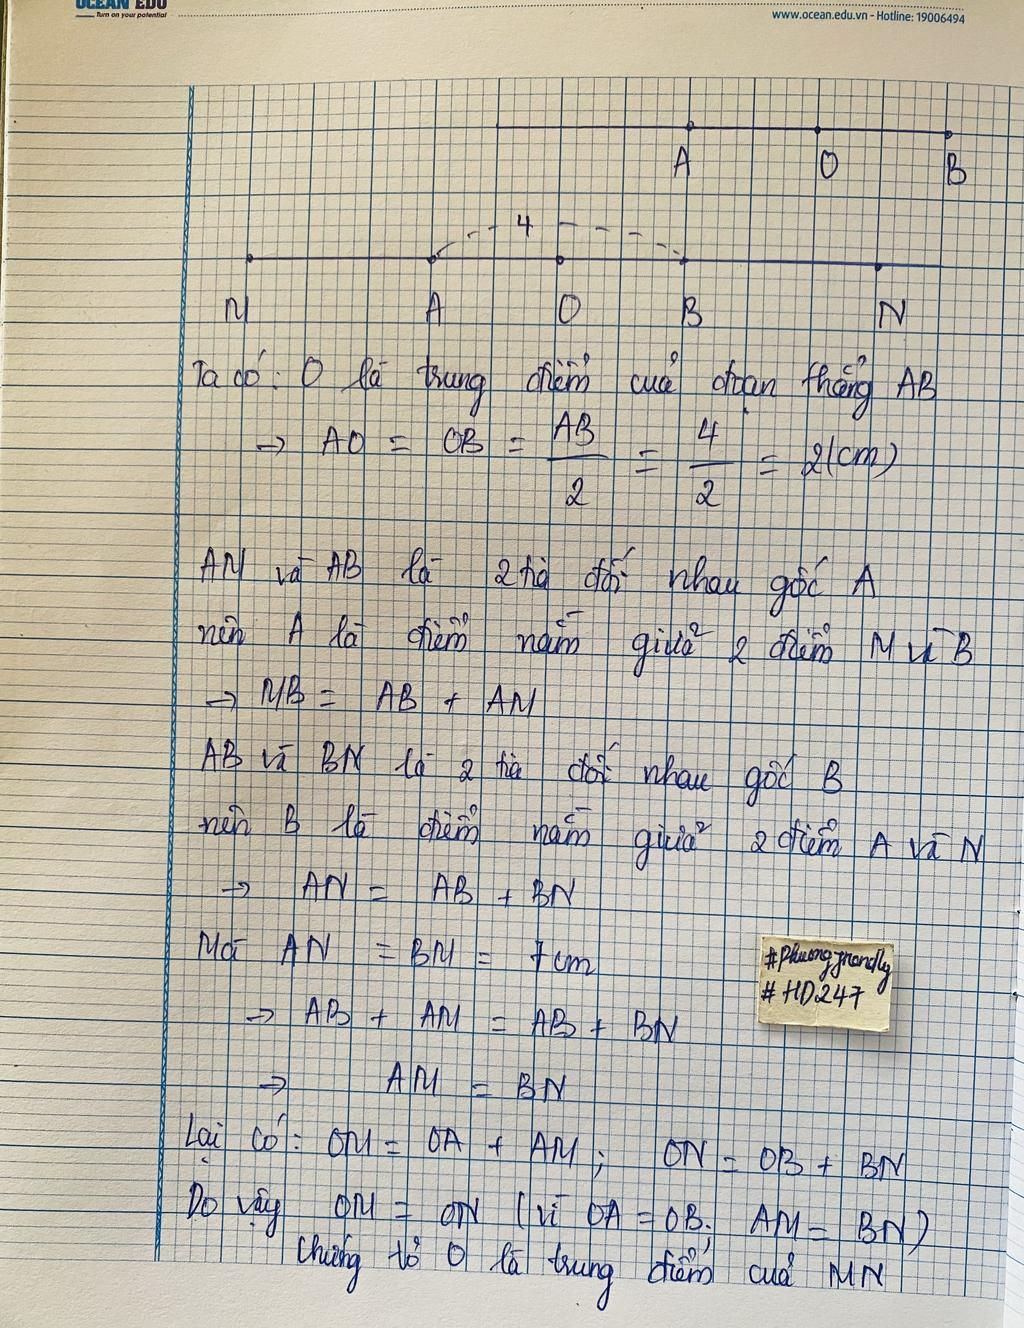 OCEAN EDU
Turn on your potential
www.ocean.edu.vn - Hotline: 19006494
A O B
4
M A O B N
Ta có: O là trung điểm của đoạn thẳng AB
→ AO = OB = AB/2 = 4/2 = 2(cm)
AM và AB là 2 tia đối nhau gốc A
nên A là điểm nằm giữa 2 điểm M và B
→ MB = AB + AM
AB và BN là 2 tia đối nhau gốc B
nên B là điểm nằm giữa 2 điểm A và N
→ AN = AB + BN
Mà AN = BM = 7cm
#Phuongfrendly
#HD247
→ AB + AM = AB + BN
→ AM = BN
Lại có: OM = OA + AM; ON = OB + BN
Do vậy OM = ON (vì OA = OB; AM = BN)
Chứng tỏ O là trung điểm của MN